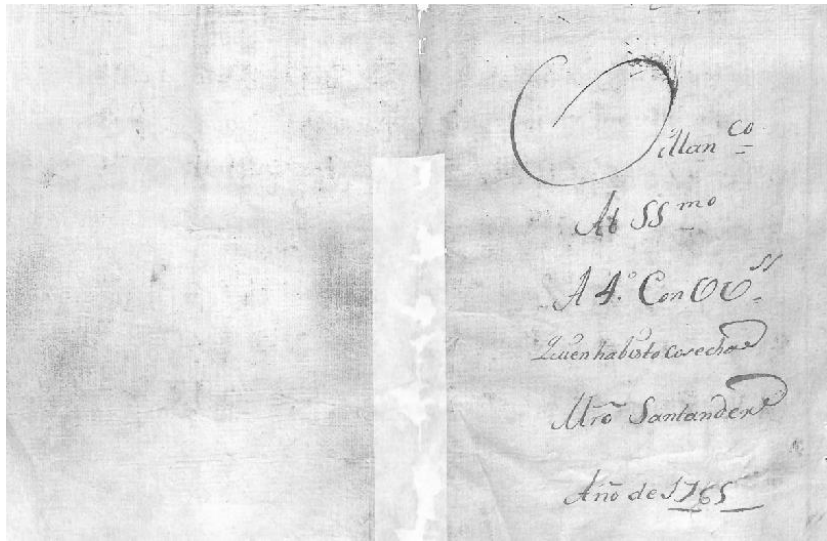 Villan^co
Al SS^mo
A 4.º Con VV^ss
Quen ha bisto cosecha
Mrõ Santander
Año de 1765